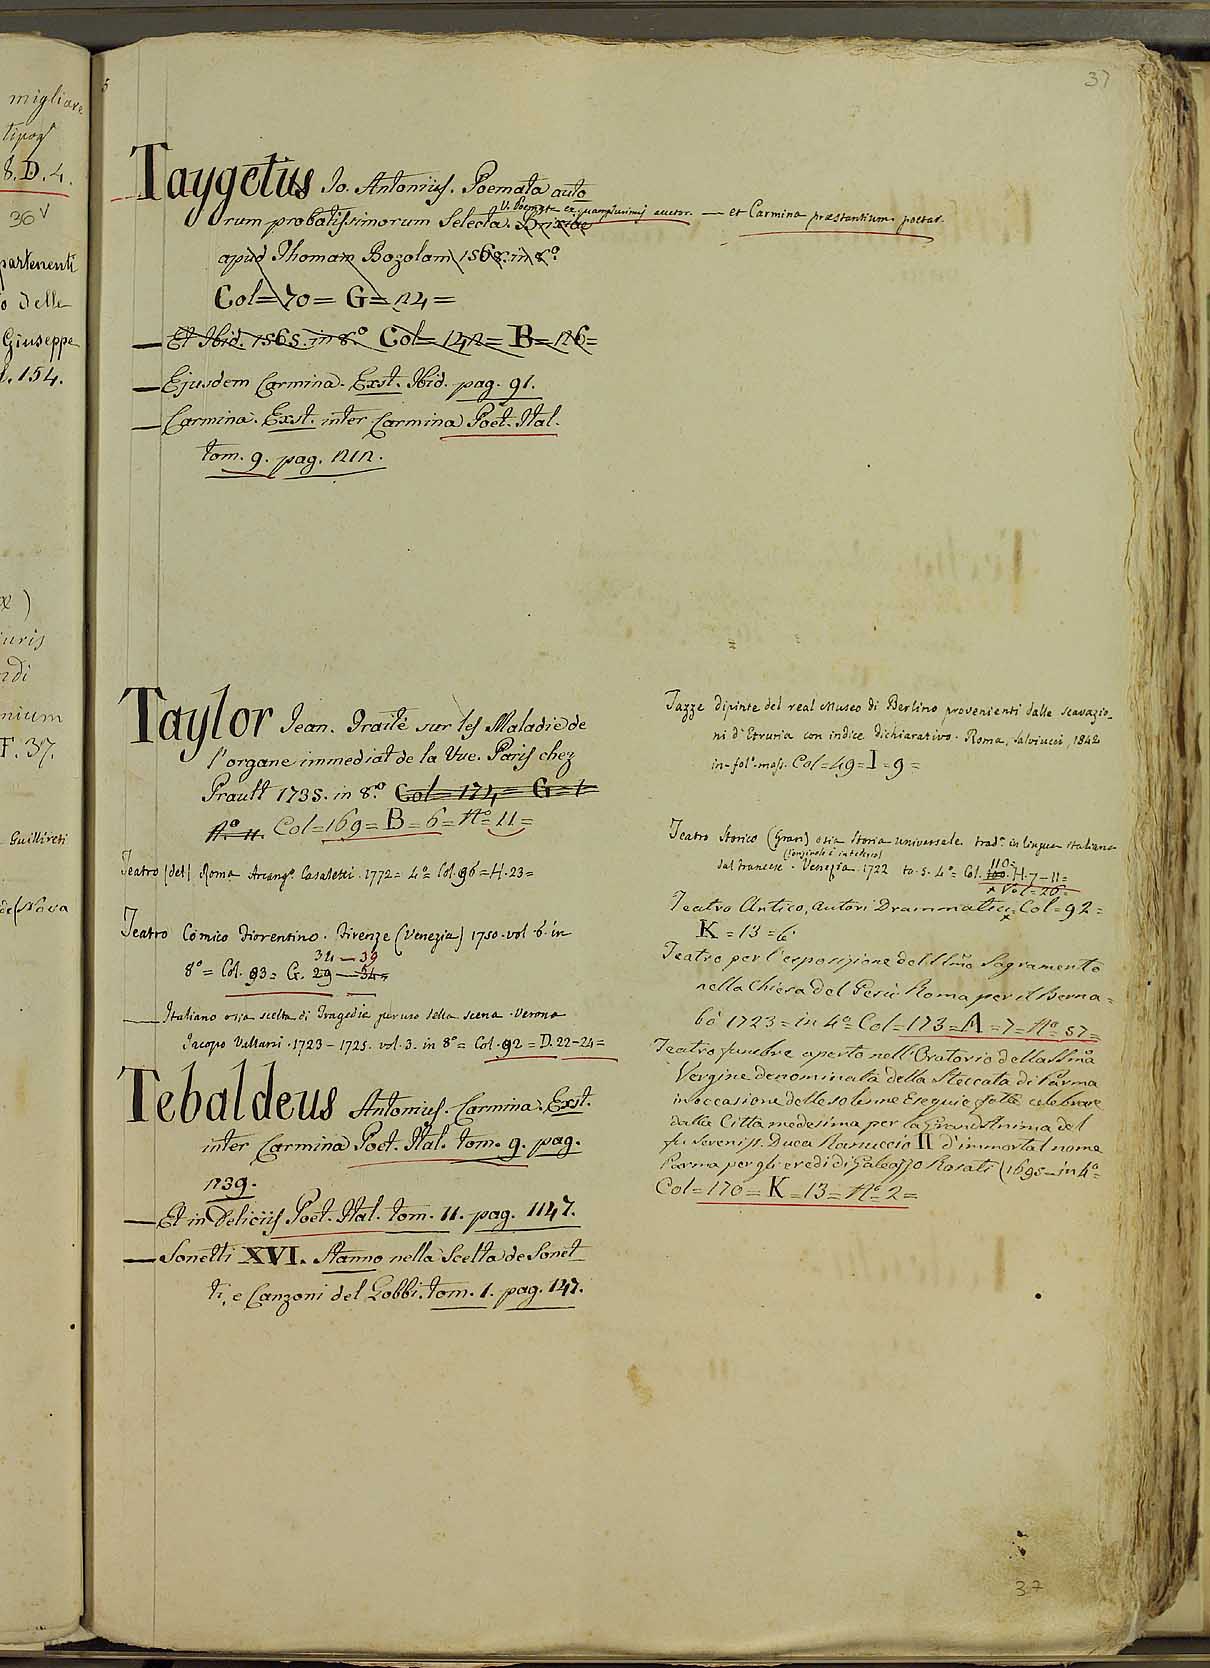 migliare
tipogª
8.D.4.
36v
partenenti
o delle
Giuseppe
154.
uris
ndi
nium
F. 37.
Guillireti
Nova
5
37
Taygetus Jo. Antonius. Poemata aucto
rum probatissimorum Selecta. Brixiae
V. Poemata ex quamplurimis auctor. — et Carmina præstantium poetar.
apud Thomam Bozolam 1568. in 8.º
Col=70= G=124=
— Et Ibid. 1565. in 8.º Col=142= B=126=
— Ejusdem Carmina. Exst. Ibid. pag. 91.
— Carmina. Exst. inter Carmina Poet. Ital.
tom. 9. pag. 212.
Taylor Jean. Traité sur les Maladie de
l'organe immediat de la Vue. Paris chez
Prault 1735. in 8.º Col=174= G=1=
Nº 11. Col=169=B=6=Nº 11=
Teatro (del) Roma Arcangº Casaletti. 1772= 4º= Col. 96=H.23=
Teatro Comico Fiorentino. Firenze (Venezia) 1750. vol. 6. in
34—39
8º= Col. 93= G. 29—34=
— Italiano osia scelta di Tragedie per uso della scena. Verona
Jacopo Vallarsi. 1723–1725. vol. 3. in 8º= Col. 92=D.22–24=
Tebaldeus Antonius. Carmina. Exst.
inter Carmina Poet. Ital. tom. 9. pag.
239.
— Et in Deliciis Poet. Ital. tom. 11. pag. 1147.
— Sonetti XVI. Stanno nella Scelta de Sonet
ti, e Canzoni del Gobbi. tom. 1. pag. 147.
Tazze dipinte del real Museo di Berlino provenienti dalle scavazio-
ni d'Etruria con indice dichiarativo. Roma, Salviucci, 1842
in-folº. mass. Col=49=I=9=
Teatro Storico (Gran) osia Storia universale tradª. in lingua italiana
(l'originale è in tedesco)
dal francese. Venezia. 1722 to. 5. 4º= Col. 100. H.7–11=
110=
× Vol=26=
Teatro Antico, autori Drammatici=Col=92=
K=13=6
Teatro per l'esposizione del SSmo Sagramento
nella Chiesa del Gesù Roma per il Berna=
bò 1723= in 4º= Col=173=A=7=Nº 57=
Teatro funebre aperto nell'Oratorio della SSmª
Vergine denominata della Steccata di Parma
in occasione delle solenne Esequie fatte celebrare
dalla Città medesima per la Grand'Anima del
fu Sereniss. Duca Ranuccio II d'immortal nome
Parma per gli eredi di Galeazzo Rosati (1695—in 4º=
Col=170=K=13=Nº 2=
37